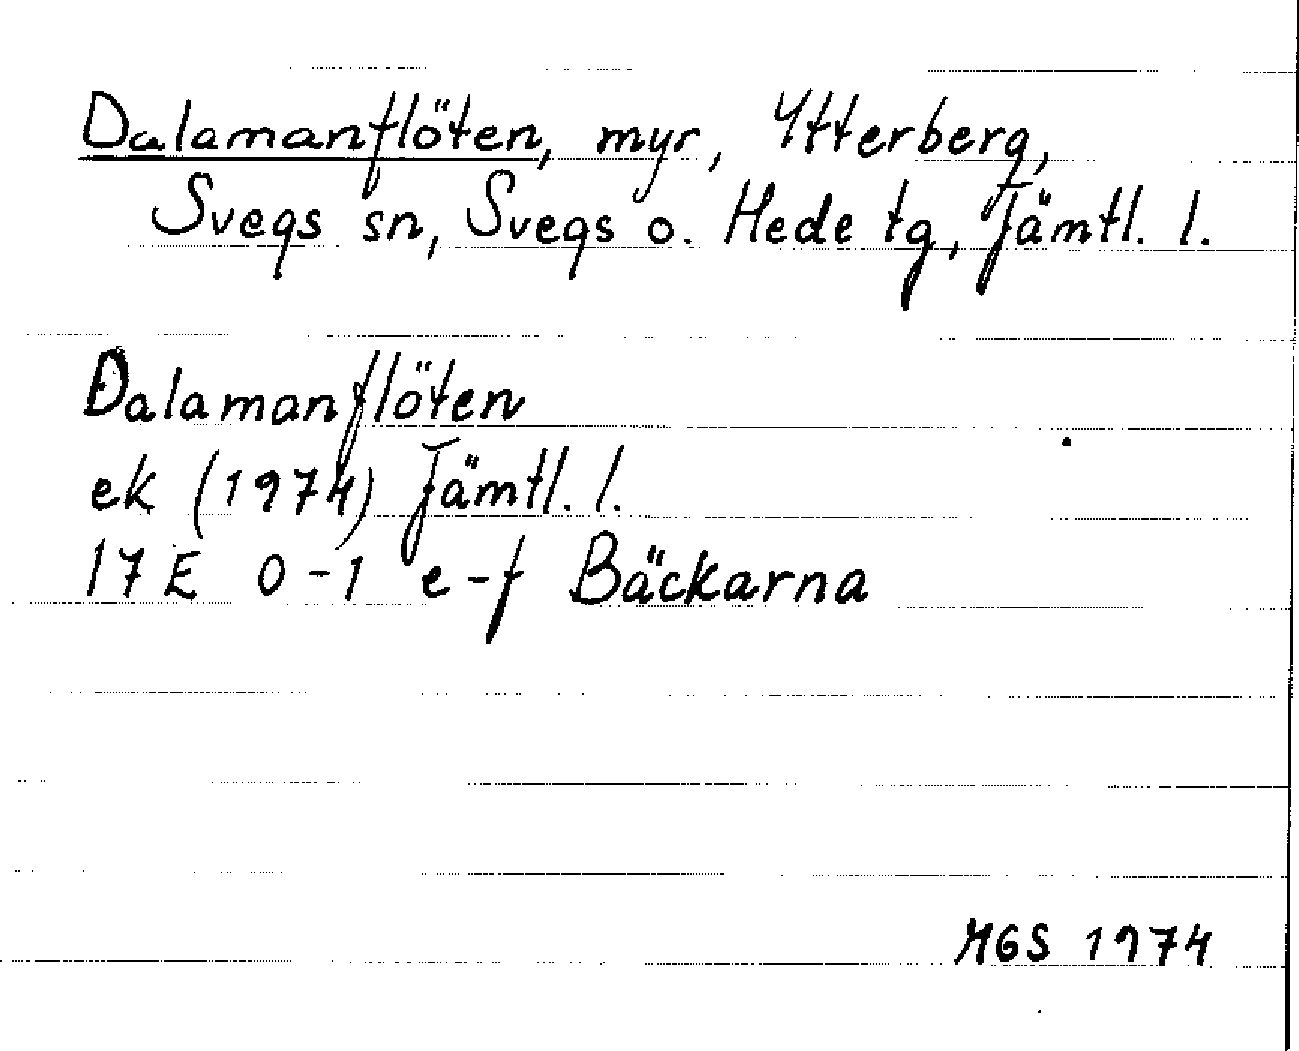 Dalamanflöten, myr, Ytterberg,
Svegs sn, Svegs o. Hede tg, Jämtl. l.
Dalamanflöten
ek (1974) Jämtl. l.
17E 0-1 e-f Bäckarna
MGS 1974